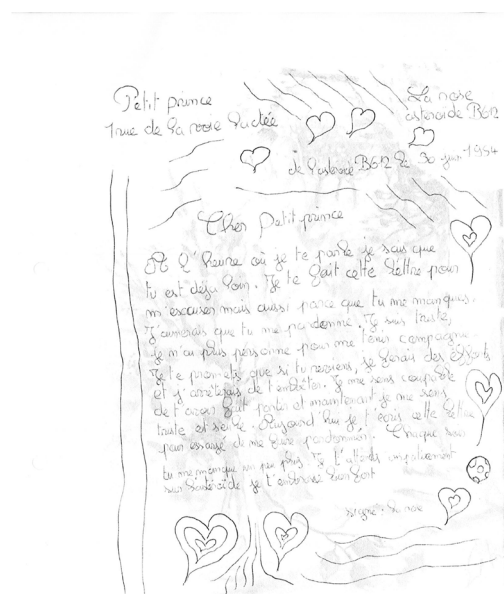 Petit prince
1 rue de la voie lactée
La rose
astéroïde B612
de l'astéroïde B612 le 30 juin 1994
Cher Petit prince
A l'heure où je te parle je sais que
tu est déja loin. Je te fait cette léttre pour
m'escuser mais aussi parce que tu me manques.
J'aimerais que tu me pardonne. Je suis triste,
Je n'ai plus personne pour me tenir compagnie.
Je te promets que si tu reviens, je ferais des efforts
et j'arrêterais de t'embêter. Je me sens coupable
de t'avoir fait partir et maintenant je me sens
triste et seule. Aujourd'hui je t'écris cette léttre
pour essayé de me faire pardonner. Chaque jour
tu me manque un peu plus. Je t'attends impatiement
sur l'astéroïde je t'embrasse bien fort
signé: la rose